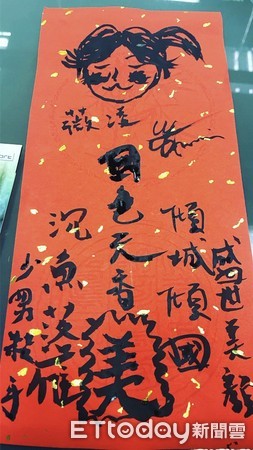 薇凌
盛世美顏
傾城傾國
国色天香
美
沉魚落雁
少男殺手
ETtoday新聞雲